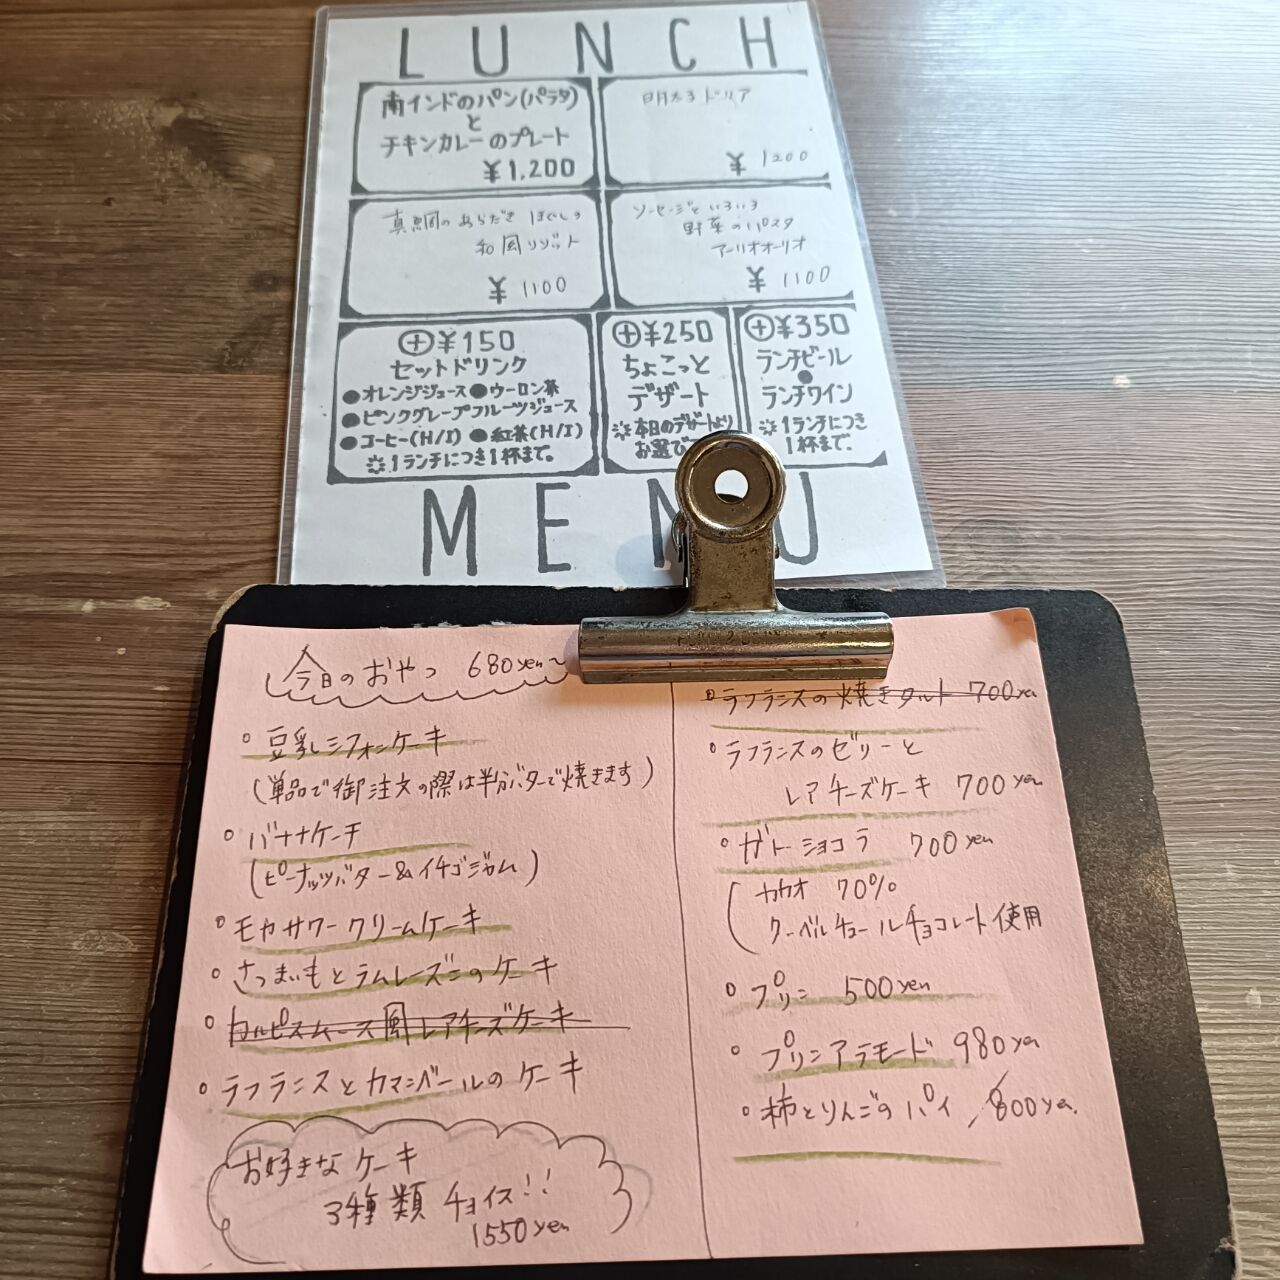 LUNCH
南インドのパン(パラタ)
と
チキンカレーのプレート
¥1,200
明太子ドリア
¥1200
真鯛のあらだき ほぐしの
和風リゾット
¥1100
ソーセージといろいろ
野菜のパスタ
アーリオオーリオ
¥1100
⊕¥150
セットドリンク
●オレンジジュース●ウーロン茶
●ピンクグレープフルーツジュース
●コーヒー(H/I) ●紅茶(H/I)
※1ランチにつき1杯まで。
⊕¥250
ちょこっと
デザート
※本日のデザートより
お選び
⊕¥350
ランチビール
●
ランチワイン
※1ランチにつき
1杯まで。
MENU
今日のおやつ 680yen~
○豆乳シフォンケーキ
(単品で御注文の際は半分バターで焼きます)
○バナナケーキ
(ピーナッツバター&イチゴジャム)
○モカサワークリームケーキ
○さつまいもとラムレーズンのケーキ
○カルピスムース風レアチーズケーキ
○ラフランスとカマンベールのケーキ
お好きなケーキ
3種類チョイス!!
1550yen
○ラフランスの焼きタルト 700yen
○ラフランスのゼリーと
レアチーズケーキ 700yen
○ガトーショコラ 700yen
(カカオ 70%
クーベルチュールチョコレート使用
○プリン 500yen
○プリンアラモード 980yen
○柿とりんごのパイ 800yen.